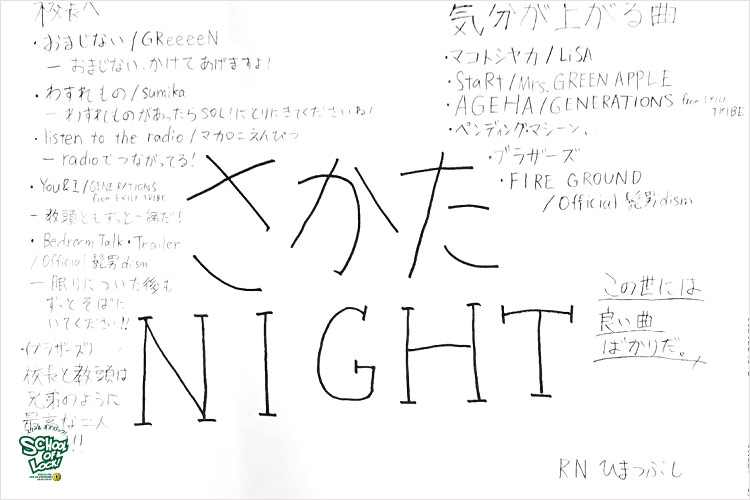 校長へ
・おまじない/GReeeeN
ー おまじない、かけてあげますよ!
・わすれもの/sumika
ーわすれものがあったらSOL!にとりにきてくださいね!
・listen to the radio/マカロニえんぴつ
ーradioでつながってる!
・You&I/GENERATIONS
from EXILE TRIBE
ー教頭ともずっと一緒だ!
・Bedroom Talk・Trailer
/Official髭男dism
ー眠りについた後も
ずっとそばに
いてください!!
・(ブラザーズ)
校長と教頭は
兄弟のように
最高な二人
!!
気分が上がる曲
・マコトシヤカ/LiSA
・StaRt/Mrs. GREEN APPLE
・AGEHA/GENERATIONS from EXILE
TRIBE
・ペンディング・マシーン、
・ブラザーズ
・FIRE GROUND
/Official髭男dism
さかた
NIGHT
この世には
良い曲
ばかりだ。
RN ひまつぶし
SCHOOL
OF
LOCK!